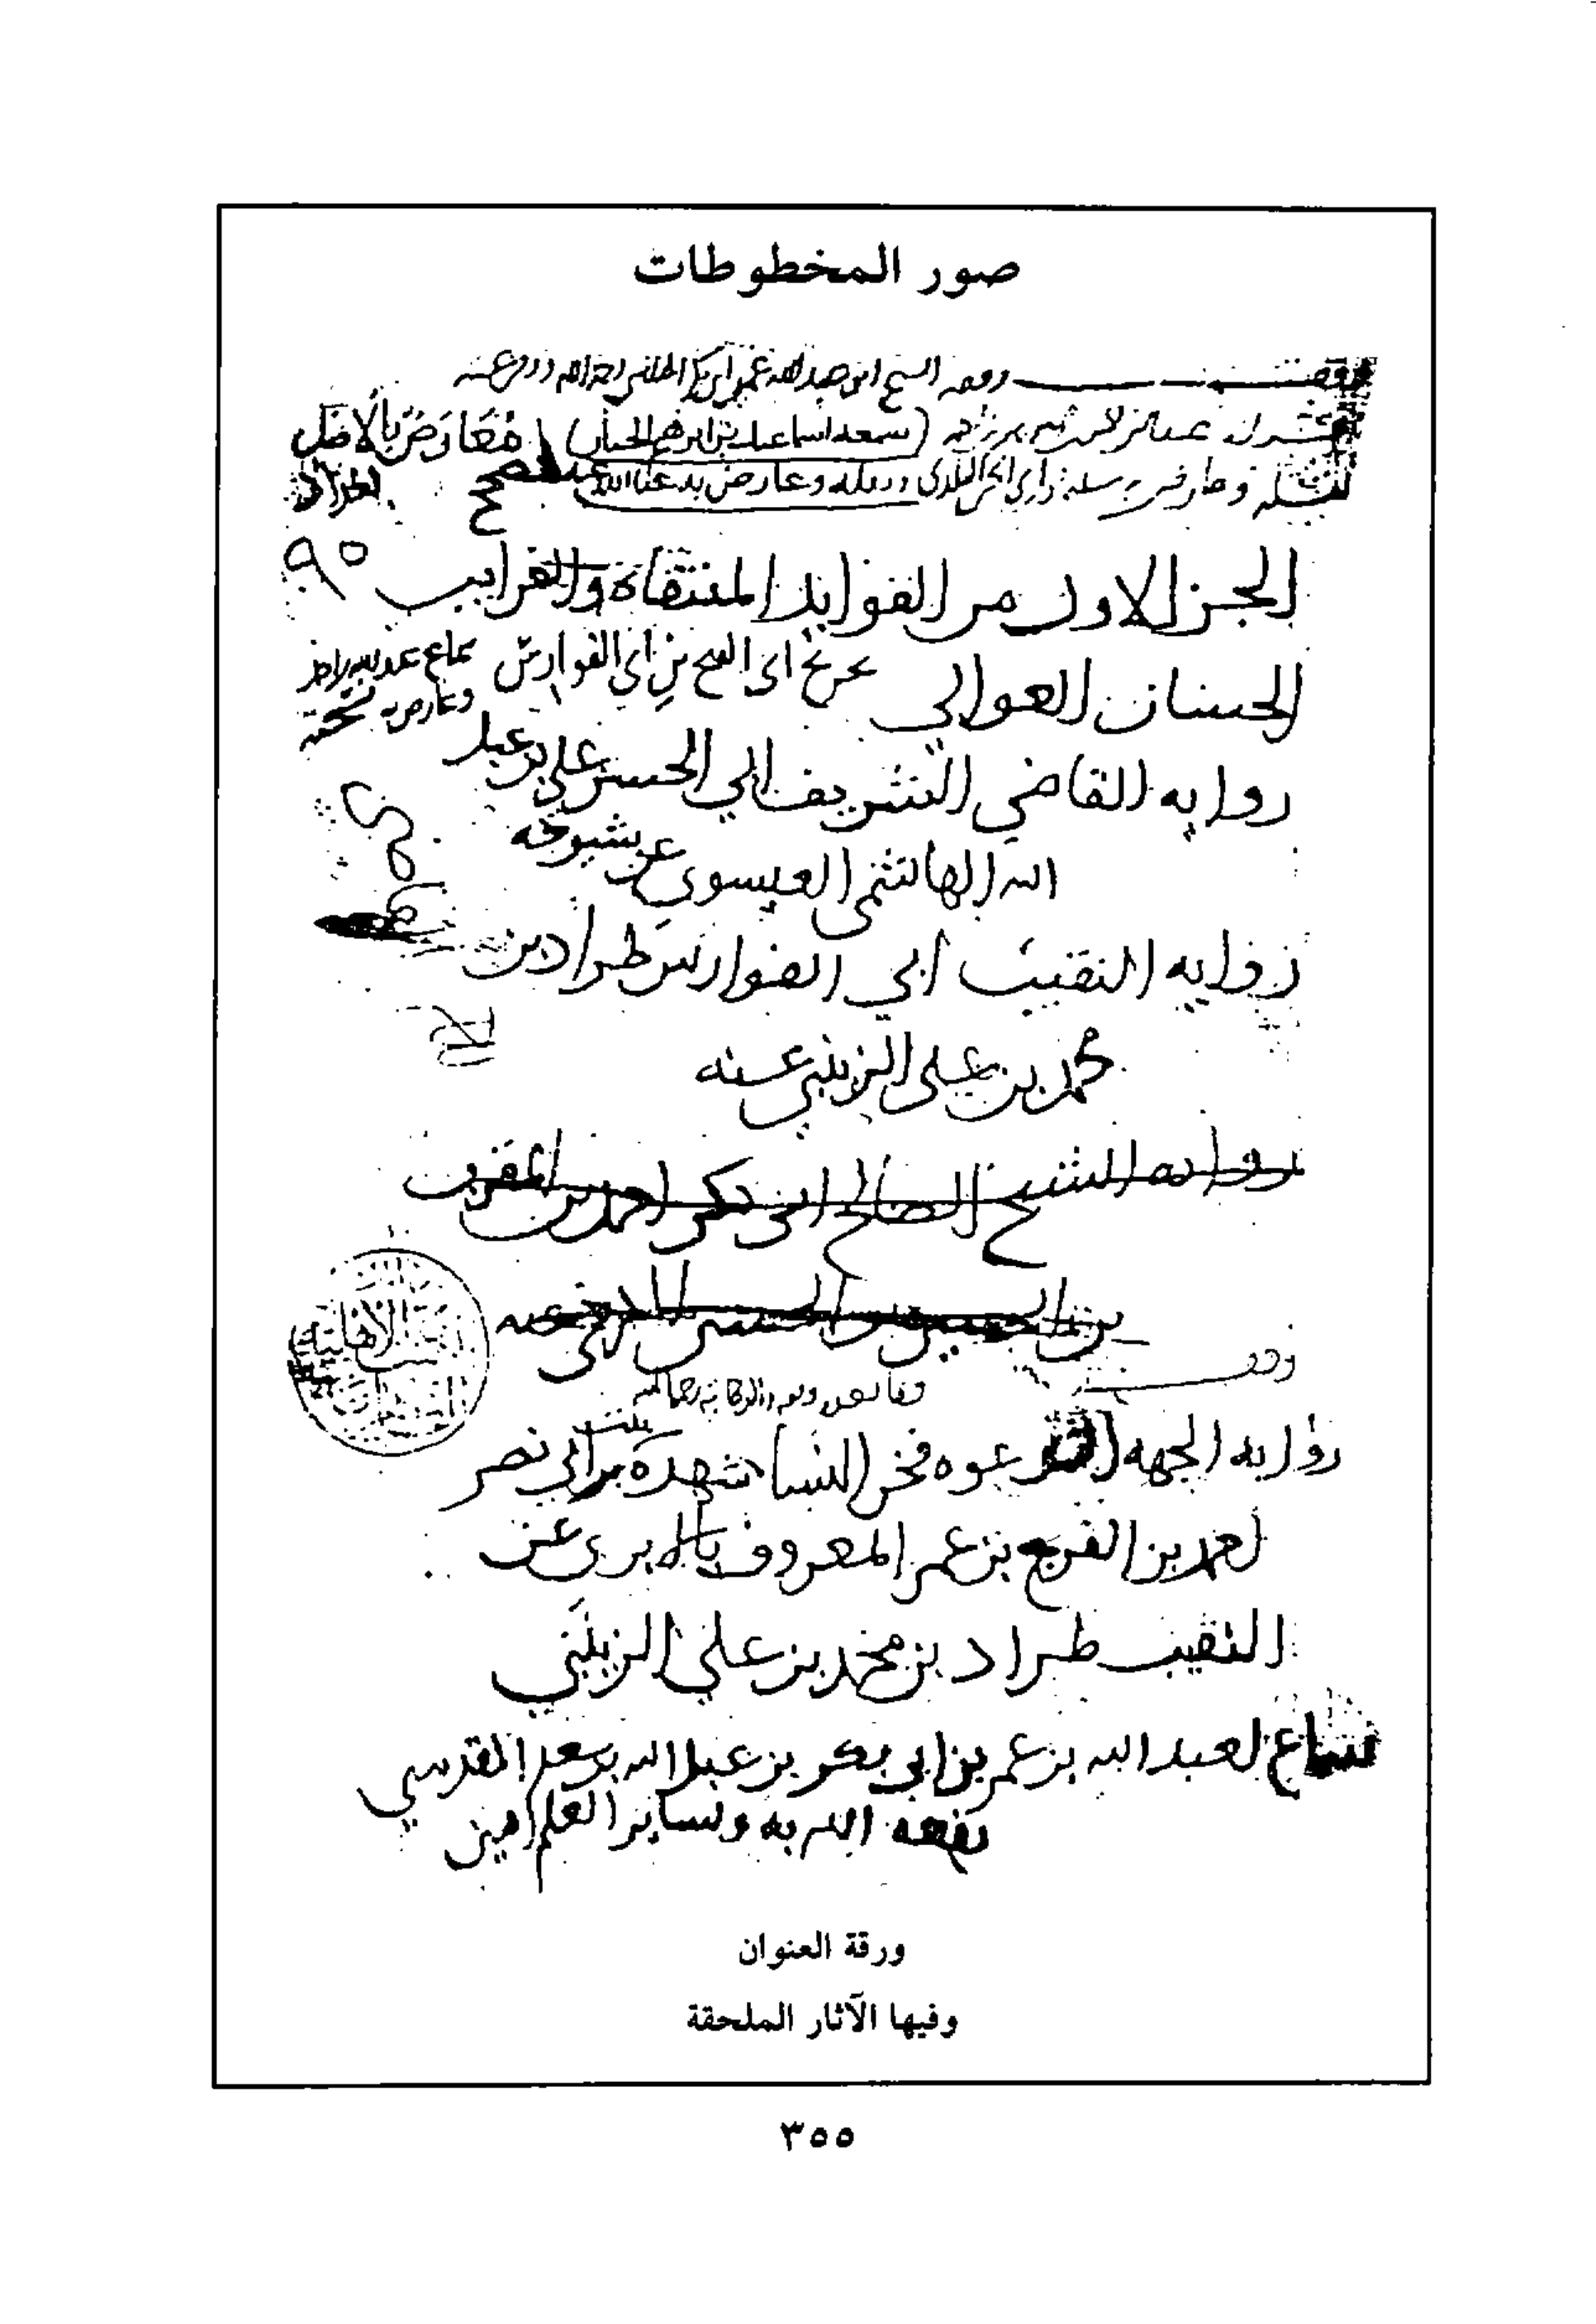 صور المخطوطات
وقفه الشيخ
سمعه اسماعيل بن ابرهيم الخباز معارض بالاصل
وعارض به عفا الله عنه فصح
الجز الاول من الفوايد المنتقاة والغرايب ٩٥
الحسان العوالي تخريج ابى الفتح بن ابى الفوارس
وعارض به نسخته
روايه القاضي الشريف ابي الحسن علي بن عبد
الله الهاشمي العيسوي عن شيوخه
روايه النقيب ابي الفوارس طراد بن
محمد بن علي الزينبي عنه
روايه الشيخ الصالح ابي بكر احمد بن المقرب
بن الحسين بن الحسن الكرخي عنه
وقف
روايه الجهه فخر النسا شهدة بنت ابي نصر
احمد بن الفرج بن عمر المعروف بالابري عن
النقيب طراد بن محمد بن علي الزينبي
سماع لعبد الله بن عمر بن ابي بكر بن عبد الله بن سعد المقدسي
نفعه الله به وساير العلم امين
ورقة العنوان
وفيها الآثار الملحقة
٣٥٥